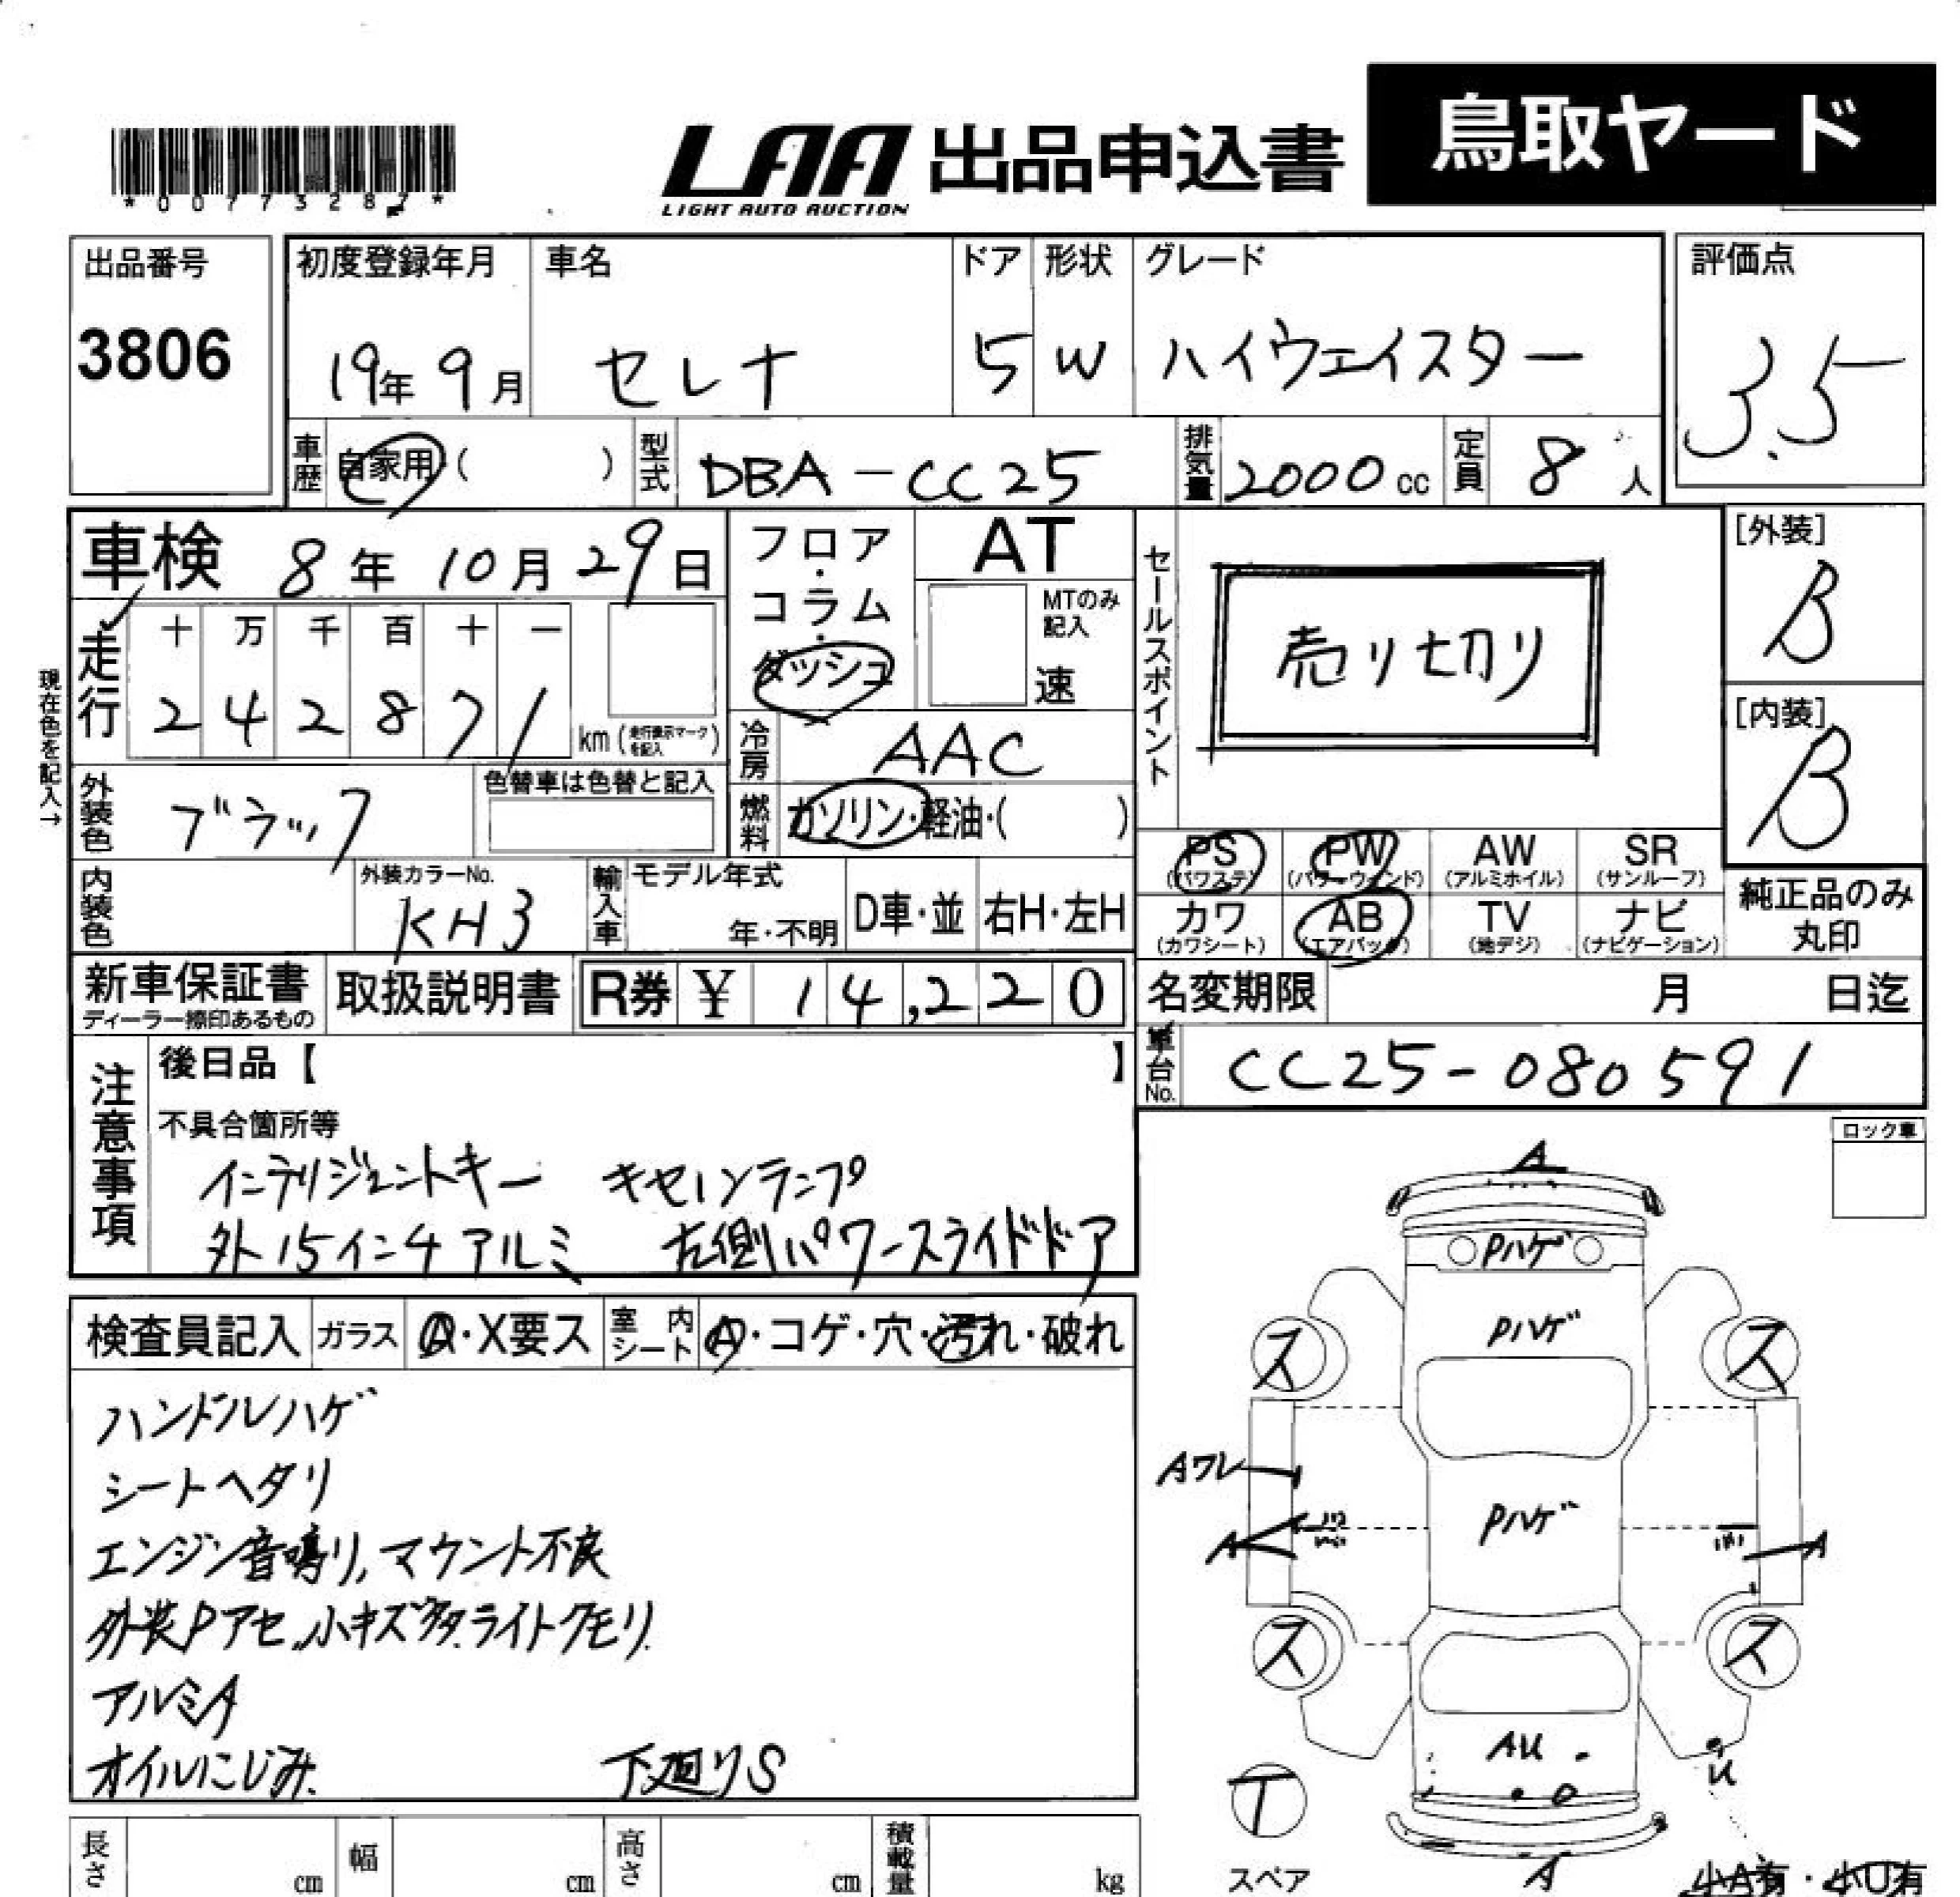 鳥取ヤード
LAA 出品申込書
LIGHT AUTO AUCTION
*00773287*
出品番号 初度登録年月 車名 ドア 形状 グレード 評価点
3806 19年 9月 セレナ 5 W ハイウェイスター 3.5
車歴 自家用( ) 型式 DBA-CC25 排気量 2000cc 定員 8人
車検 8年 10月 29日
フロア・コラム・ダッシュ
AT
MTのみ記入
速
セールスポイント
売り切り
[外装]
B
[内装]
B
現在色を記入→
走行 十 万 千 百 十 一
2 4 2 8 7 1 km (走行表示マークを記入)
冷房 AAC
外装色 ブラック
色替車は色替と記入
燃料 ガソリン・軽油・( )
PS (パワステ) PW (パワーウィンドウ) AW (アルミホイル) SR (サンルーフ)
カワ (カワシート) AB (エアバック) TV (地デジ) ナビ (ナビゲーション)
純正品のみ丸印
内装色
外装カラーNo.
KH3
輸入車 モデル年式
年・不明
D車・並 右H・左H
新車保証書
ディーラー捺印あるもの
取扱説明書 R券 ¥ 14,220
名変期限 月 日迄
車台No. CC25-080591
注意事項
後日品【 】
不具合箇所等
インテリジェントキー キセノンランプ
外15インチアルミ 左側パワースライドドア
ロック車
検査員記入 ガラス A・X要ス 室内シート A・コゲ・穴・汚れ・破れ
ハンドルハゲ
シートヘタリ
エンジン音鳴り,マウント不良
外装Pアセ,小キズ多,ライトクモリ
アルミA
オイルにじみ 下廻りS
A
Pハゲ
Pハゲ
ス ス
Aワレ
Pハゲ
A A
ス ス
AU
U
T
スペア
A
小A有・小U有
長さ cm 幅 cm 高さ cm 積載量 kg